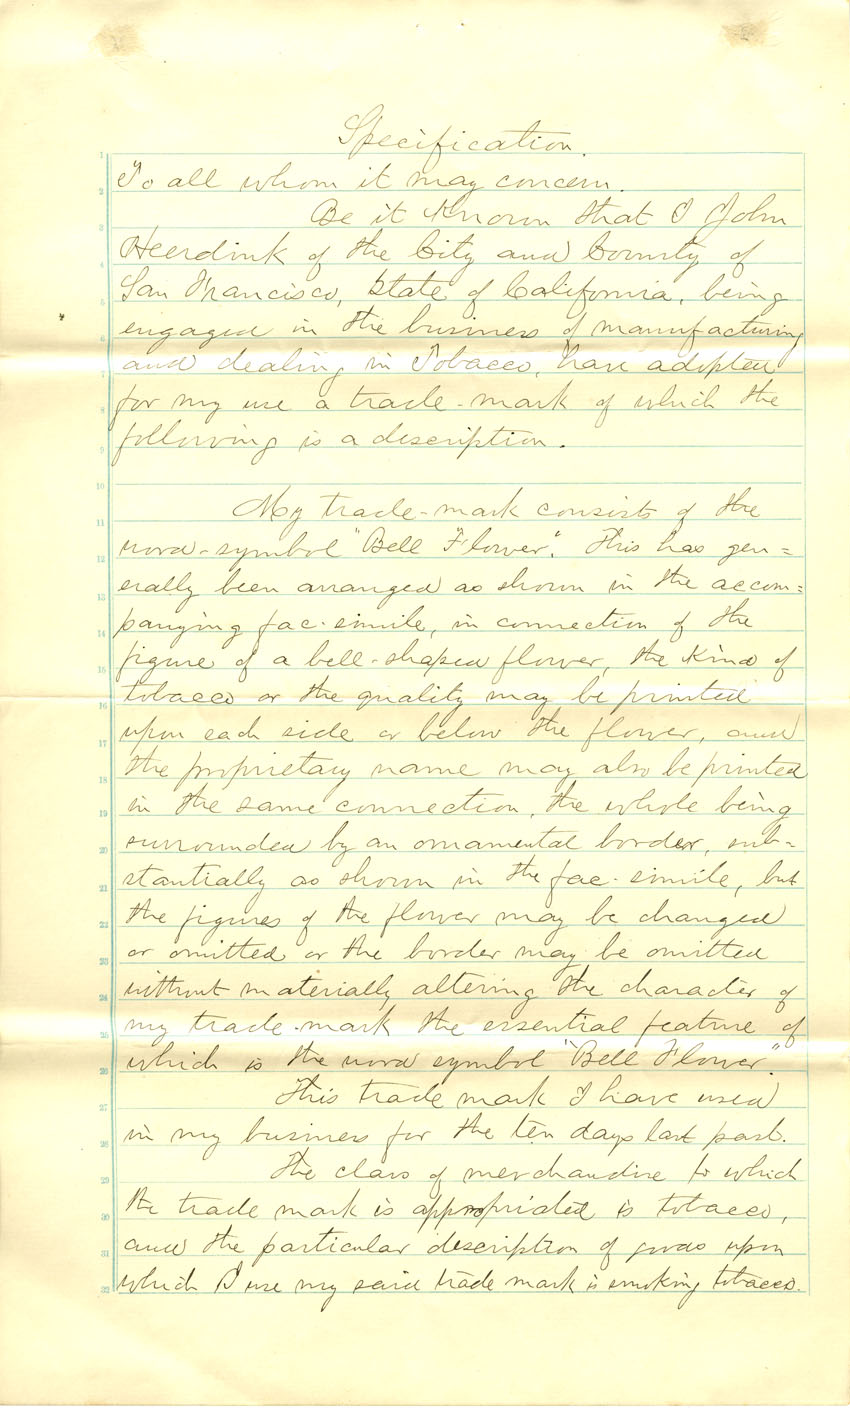 Specification.
1
To all whom it may concern.
2
Be it Known that I John
3
Heerdink of the City and County of
4
San Francisco, State of California, being
5
engaged in the business of manufacturing
6
and dealing in Tobacco, have adopted
7
for my use a trade-mark of which the
8
following is a description.
9
10
My trade-mark consists of the
11
word-symbol "Bell Flower". This has gen=
12
erally been arranged as shown in the accom=
13
panying fac-simile, in connection of the
14
figure of a bell-shaped flower, the Kind of
15
tobacco or the quality may be printed
16
upon each side or below the flower, and
17
the proprietary name may also be printed
18
in the same connection, the whole being
19
surrounded by an ornamental border, sub=
20
stantially as shown in the fac-simile, but
21
the figures of the flower may be changed
22
or omitted or the border may be omitted
23
without materially altering the character of
24
my trade-mark the essential feature of
25
which is the word symbol "Bell Flower."
26
This trade mark I have used
27
in my business for the ten days last past.
28
The class of merchandise to which
29
the trade mark is appropriated is tobacco,
30
and the particular description of goods upon
31
which I use my said trade mark is smoking tobacco.
32